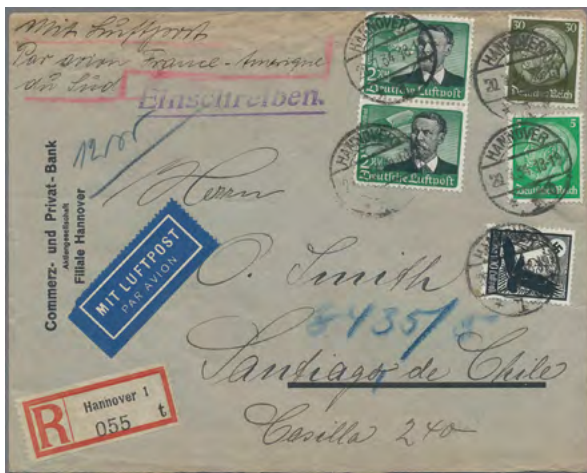 Mit Luftpost
Par avion France-Amerique
du Sud
Einschreiben.
Commerz- und Privat-Bank
Aktiengesellschaft
Filiale Hannover
MIT LUFTPOST
PAR AVION
Herrn
O. Smith
Santiago de Chile
Casilla 240
R
Hannover 1
055 t
2
Deutsche Luftpost
2
Deutsche Luftpost
30 30
Deutsches Reich
5
Deutsches Reich
HANNOVER
HANNOVER
HANNOVER